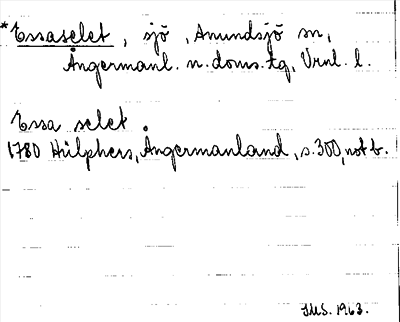 *Essaselet, sjö, Anundsjö sn,
Ångermanl. n. doms. tg, Vrnl. l.
Essa selet
1780 Hülphers, Ångermanland, s. 300, not b.
SMS. 1963.